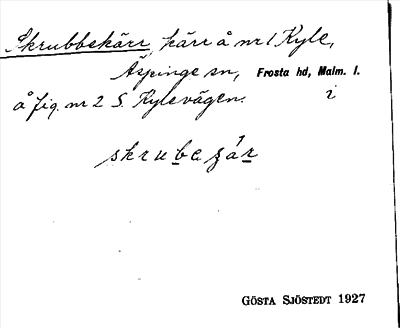 Skrubbekärr, kärr å nr 1 Kyle,
Äspinge sn, Frosta hd, Malm. l.
å fig. nr 2 S. Kylevägen. i
skrubeʒár
GÖSTA SJÖSTEDT 1927